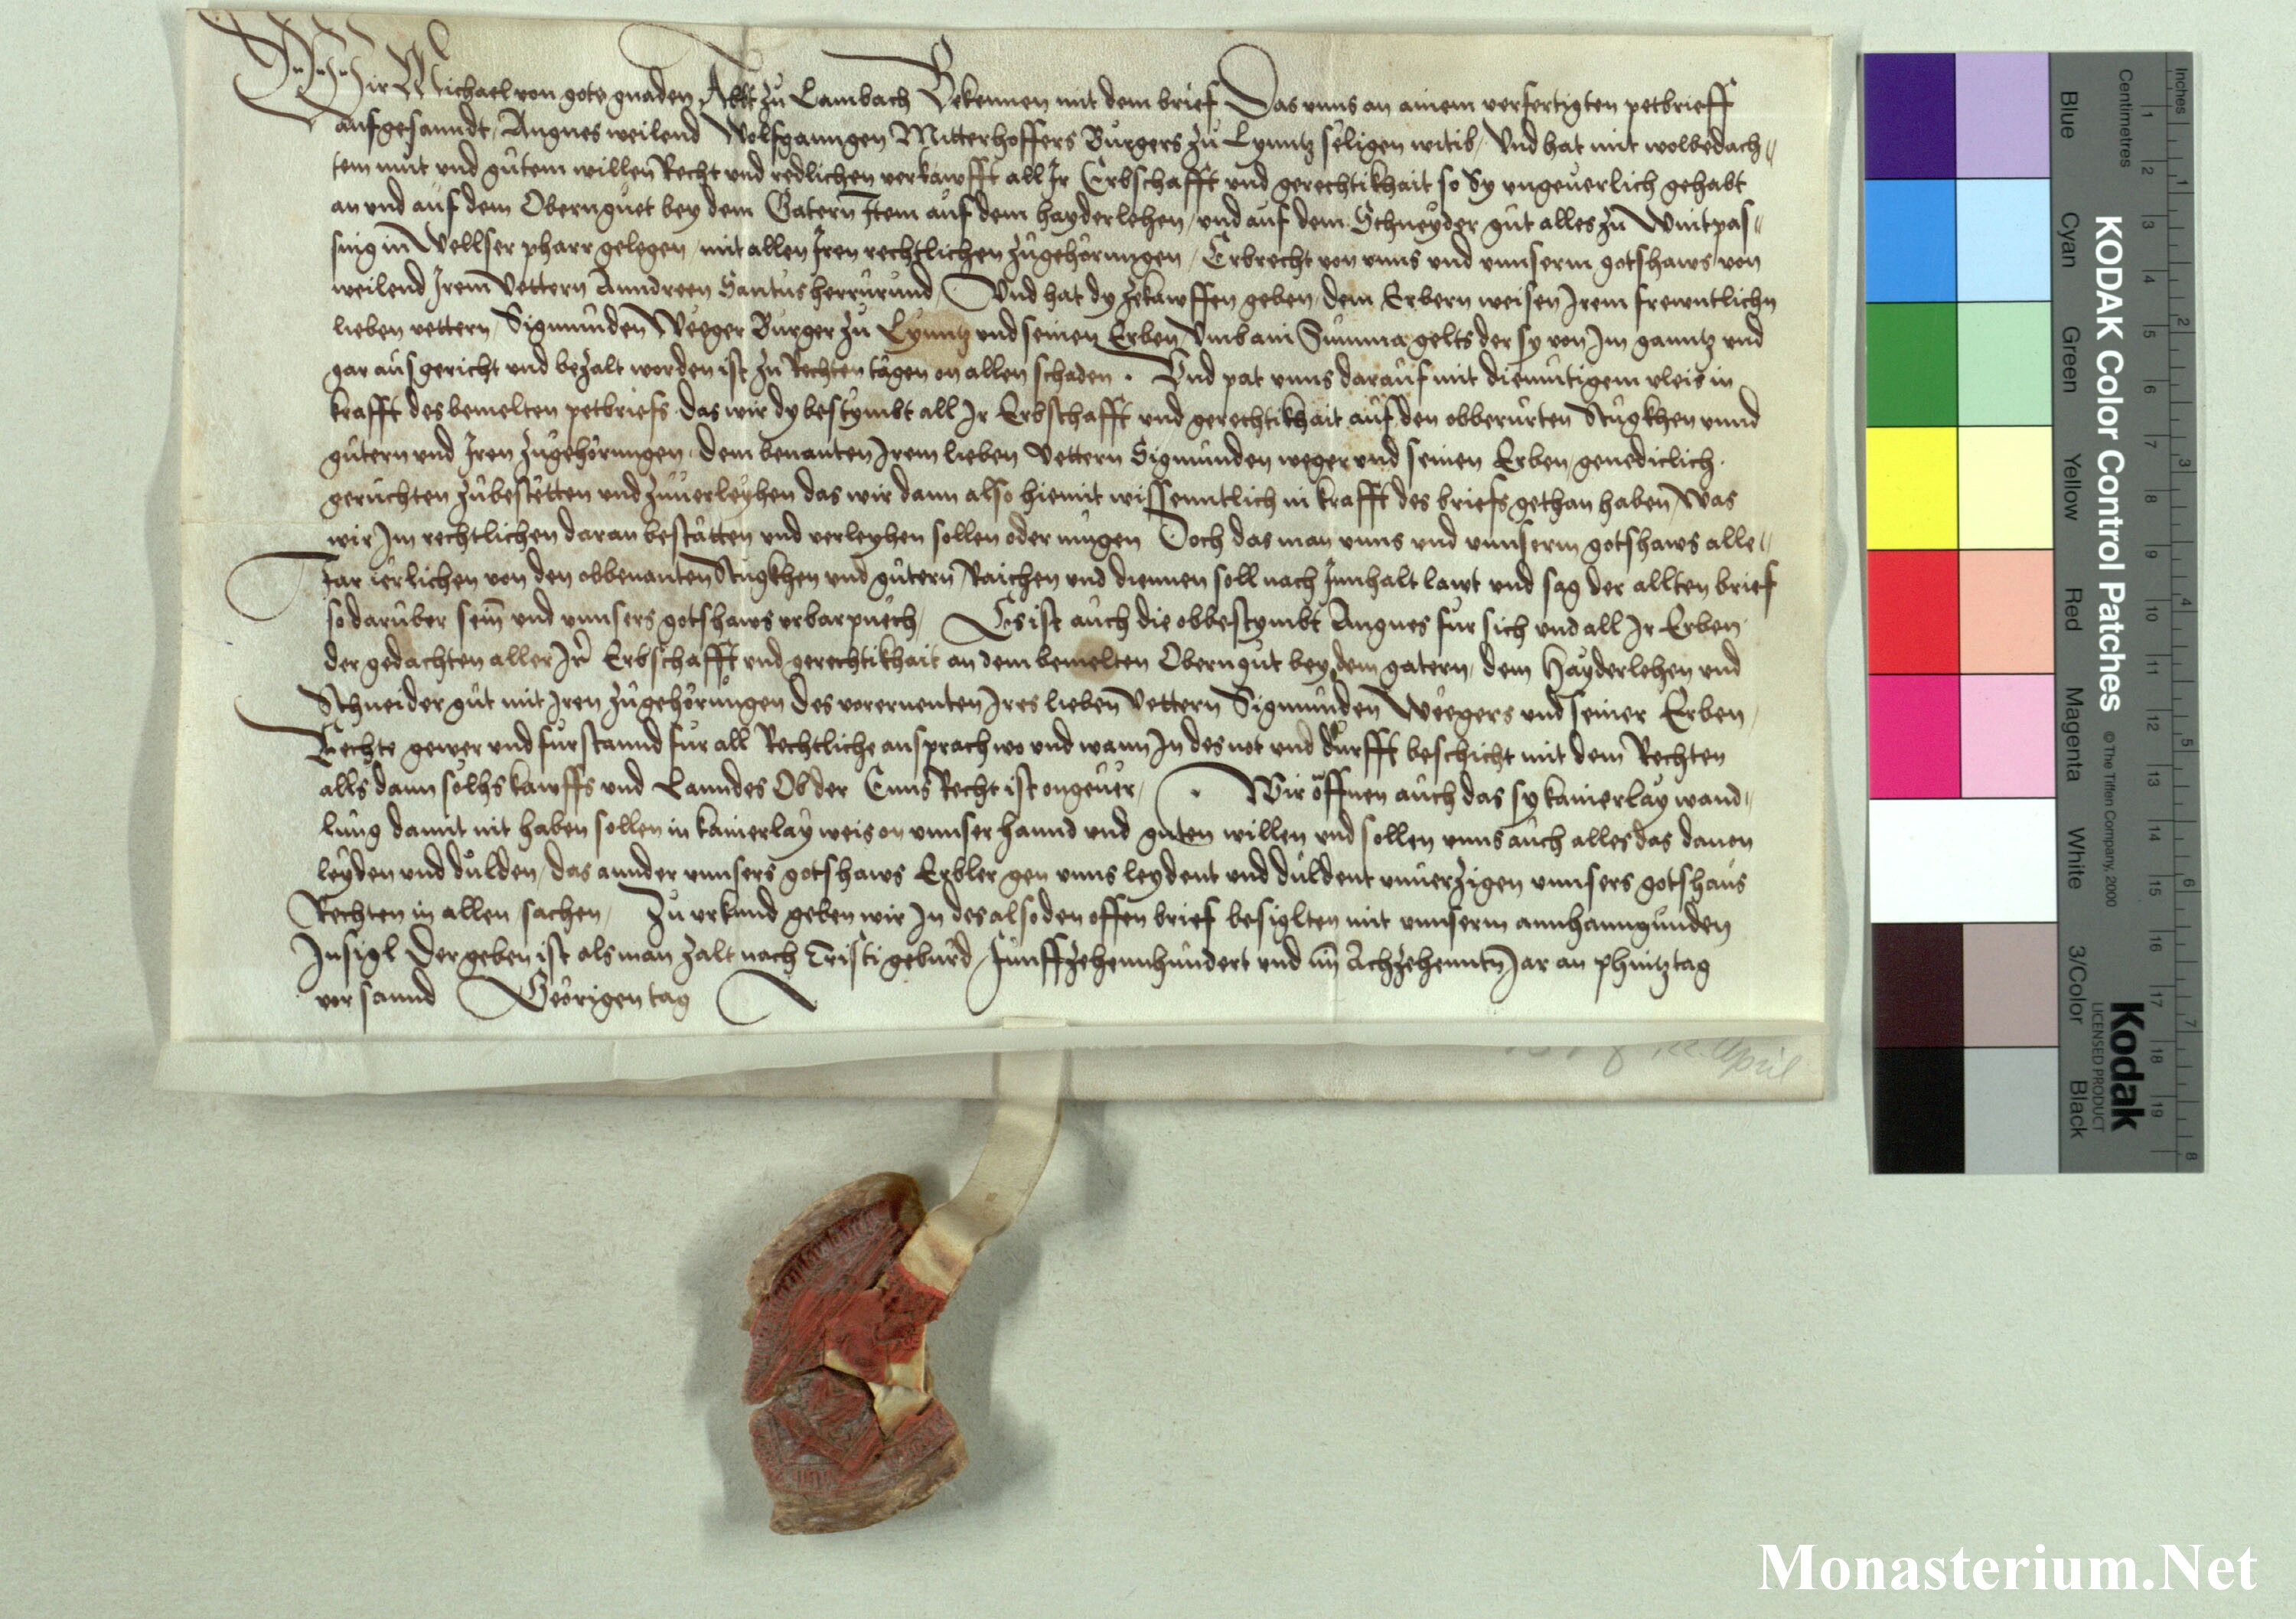 Wir Michael von gots gnaden Abbt zů Lambach Bekennen mit dem brief Das vnns an ainem verfertigten petbrieff
aufgesanndt, Angnes weilend Wolfganngen Mitterhoffers Burgers zů Lynntz seligen witib, Vnd hat mit wolbedach„
tem můt vnd gůtem willen Recht vnd redlichen verkawfft all Ir Erbschafft vnd gerechtikhait so Sy vngeuerlich gehabt
an vnd auf dem Obernguet bey dem Gatern Item auf dem hayderlehen, vnd auf dem Schneyder gůt alles zů Wintpas„
sing in Vellser pharr gelegen, mit allen Iren rechtlichen zůgehörungen, Erbrecht von vnns vnd vnnserm gotshaws von
weilend Irem Vettern Anndreen Santus herrůrund, Vnd hat dy zekawffen geben, dem Erbern weisen Irem frewntlichn
lieben vettern, Sigmunden Weeger Burger zů Lynntz vnd seinen Erben, Vmb ain Summa gelts der sy von Im ganntz vnd
gar ausgericht vnd bezalt worden ist zů Rechten tägen on allen schaden. Vnd pat vnns darauf mit diemůtigem vleis in
krafft des bemelten petbriefs das wir dy bestymbt all Ir Erbschafft vnd gerechtikhait auf den obberůrten Stugkhen vnnd
gůtern vnd Iren zůgehörungen, dem benanten Irem lieben Vettern Sigmunden weger vnd seinen Erben, genediclich
gerůchten zůbestëtten vnd zuuerleyhen das wir dann also hiemit wissenntlich in krafft des briefs gethan haben, Was
wir Im rechtlichen daran bestätten vnd verleyhen sollen oder mügen Doch das man vnns vnd vnnserm gotshaws alle„
Iar ierlichen von den obbenanten Stugkhen vnd gůtern Raichen vnd diennen soll nach Innhalt lawt vnd sag der allten brief
so darüber sein vnd vnnsers gotshaws vrbarpuech, Es ist auch die obbestymbt Angnes für sich vnd all Ir Erben
der gedachten aller Irer Erbschafft vnd gerechtikhait an dem bemelten Oberngut bey dem gatern, dem Hayderlehen vnd
Schneider gůt mit Iren zůgehörungen des vorernenten Ires lieben Vettern Sigmunden Weegers vnd seiner Erben,
Rechte gewer vnd fürstannd für all Rechtliche ansprach wo vnd wann In des not vnd durfft beschicht mit dem Rechten
alls dann sölhs kawffs vnd Lanndes Ob der Enns Recht ist ongeuer, Wir öffnen auch das sy kainerlay wand„
lung damit nit haben sollen in kainerlay weis on vnnser hannd vnd guten willen vnd sollen vnns auch alles das dauon
leyden vnd dulden, das annder vnnsers gotshaws Erbler gen vnns leydent vnd duldent vnuerzigen vnnsers gotshaus
Rechten in allen sachen, Zu vrkund geben wir In des also den offen brief besiglten mit vnnserm annhanngunden
Insigl Der geben ist als man zalt nach Cristi geburd, Funffzehennhundert vnd im Achzehenntn Jar an phintztag
vor sannd Georigen tag
April
KODAK Color Control Patches
© The Tiffen Company, 2000
Kodak
LICENSED PRODUCT
Blue Cyan Green Yellow Red Magenta White 3/Color Black
Inches
Centimetres
1 2 3 4 5 6 7 8 9 10 11 12 13 14 15 16 17 18 19
1 2 3 4 5 6 7 8
Monasterium.Net